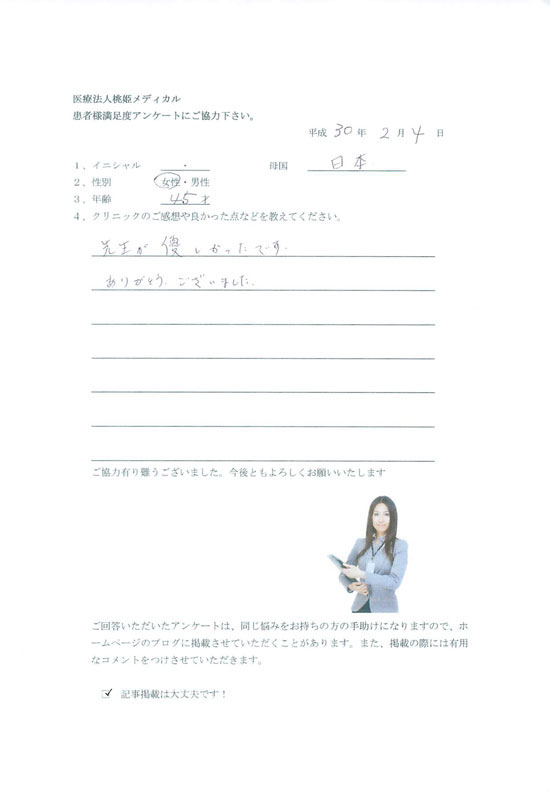 医療法人桃姫メディカル
患者様満足度アンケートにご協力下さい。
平成 30 年 2 月 4 日
1、イニシャル ・ 母国 日本
2、性別 女性・男性
3、年齢 45才
4、クリニックのご感想や良かった点などを教えてください。
先生が優しかったです.
ありがとうございました.
ご協力有り難うございました。今後ともよろしくお願いいたします
ご回答いただいたアンケートは、同じ悩みをお持ちの方の手助けになりますので、ホ
ームページのブログに掲載させていただくことがあります。また、掲載の際には有用
なコメントをつけさせていただきます。
☑ 記事掲載は大丈夫です！